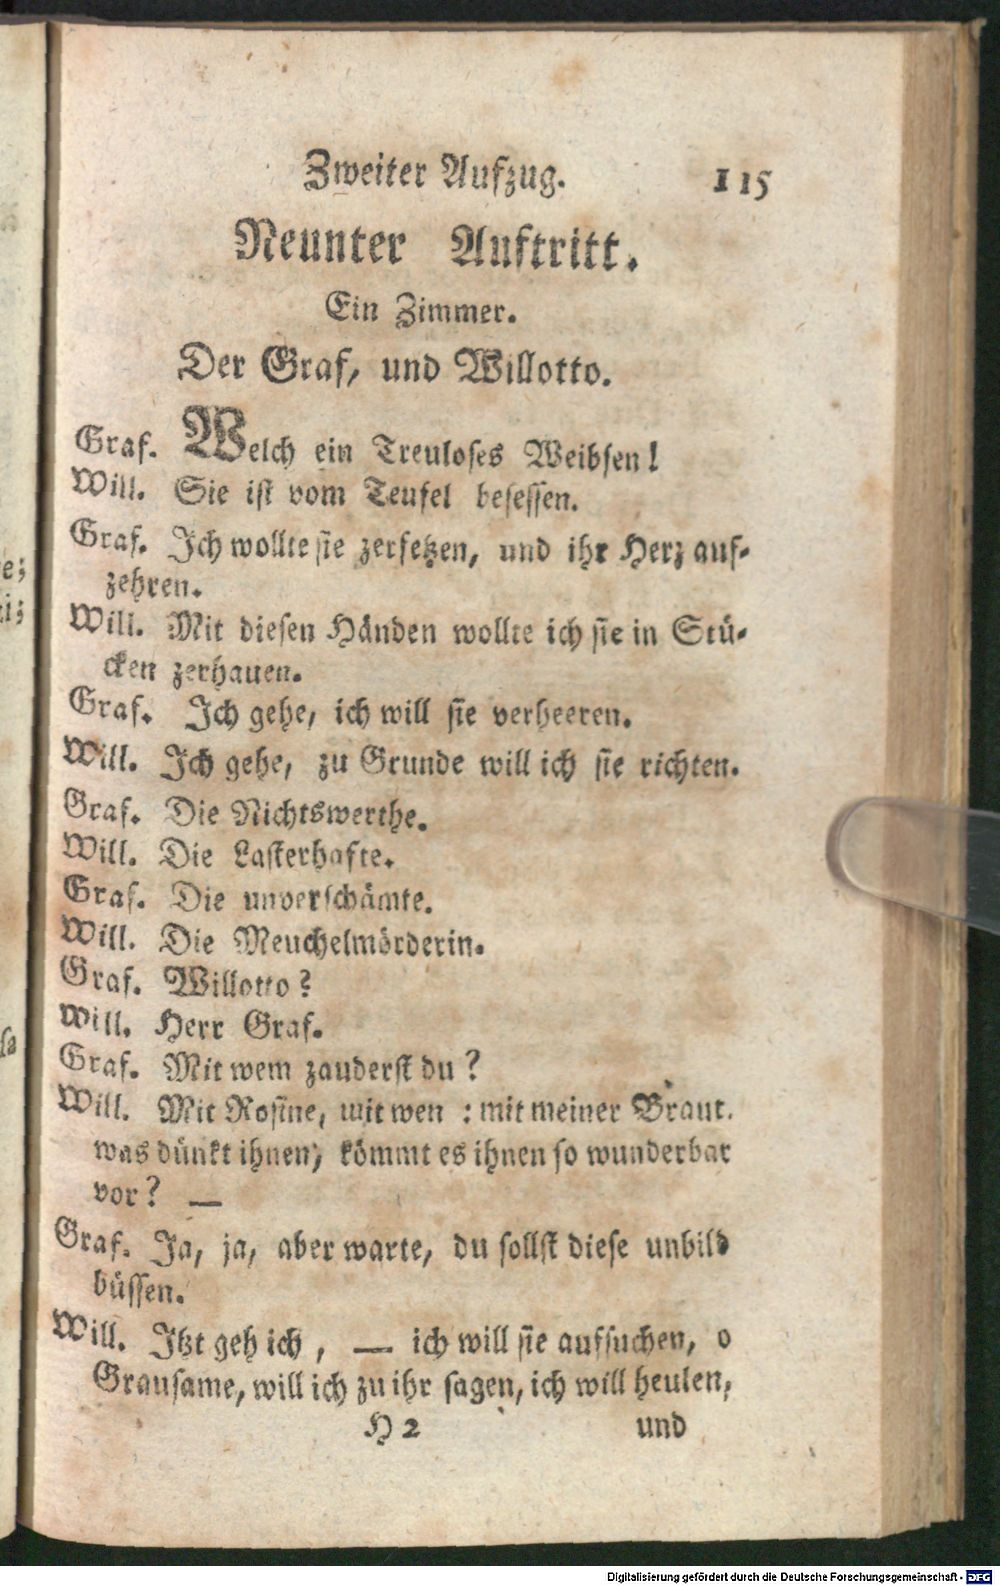 Zweiter Aufzug. 115
Neunter Auftritt.
Ein Zimmer.
Der Graf, und Willotto.
Graf. Welch ein Treuloses Weibsen!
Will. Sie ist vom Teufel besessen.
Graf. Ich wollte sie zerfetzen, und ihr Herz auf-
zehren.
Will. Mit diesen Händen wollte ich sie in Stü-
cken zerhauen.
Graf. Ich gehe, ich will sie verheeren.
Will. Ich gehe, zu Grunde will ich sie richten.
Graf. Die Nichtswerthe.
Will. Die Lasterhafte.
Graf. Die unverschämte.
Will. Die Meuchelmörderin.
Graf. Willotto?
Will. Herr Graf.
Graf. Mit wem zauderst du?
Will. Mit Rosine, mit wen : mit meiner Braut.
was dünkt ihnen, kömmt es ihnen so wunderbar
vor? —
Graf. Ja, ja, aber warte, du sollst diese unbild
büssen.
Will. Itzt geh ich, — ich will sie aufsuchen, o
Grausame, will ich zu ihr sagen, ich will heulen,
H 2 und
e;
i;
sa
Digitalisierung gefördert durch die Deutsche Forschungsgemeinschaft - DFG